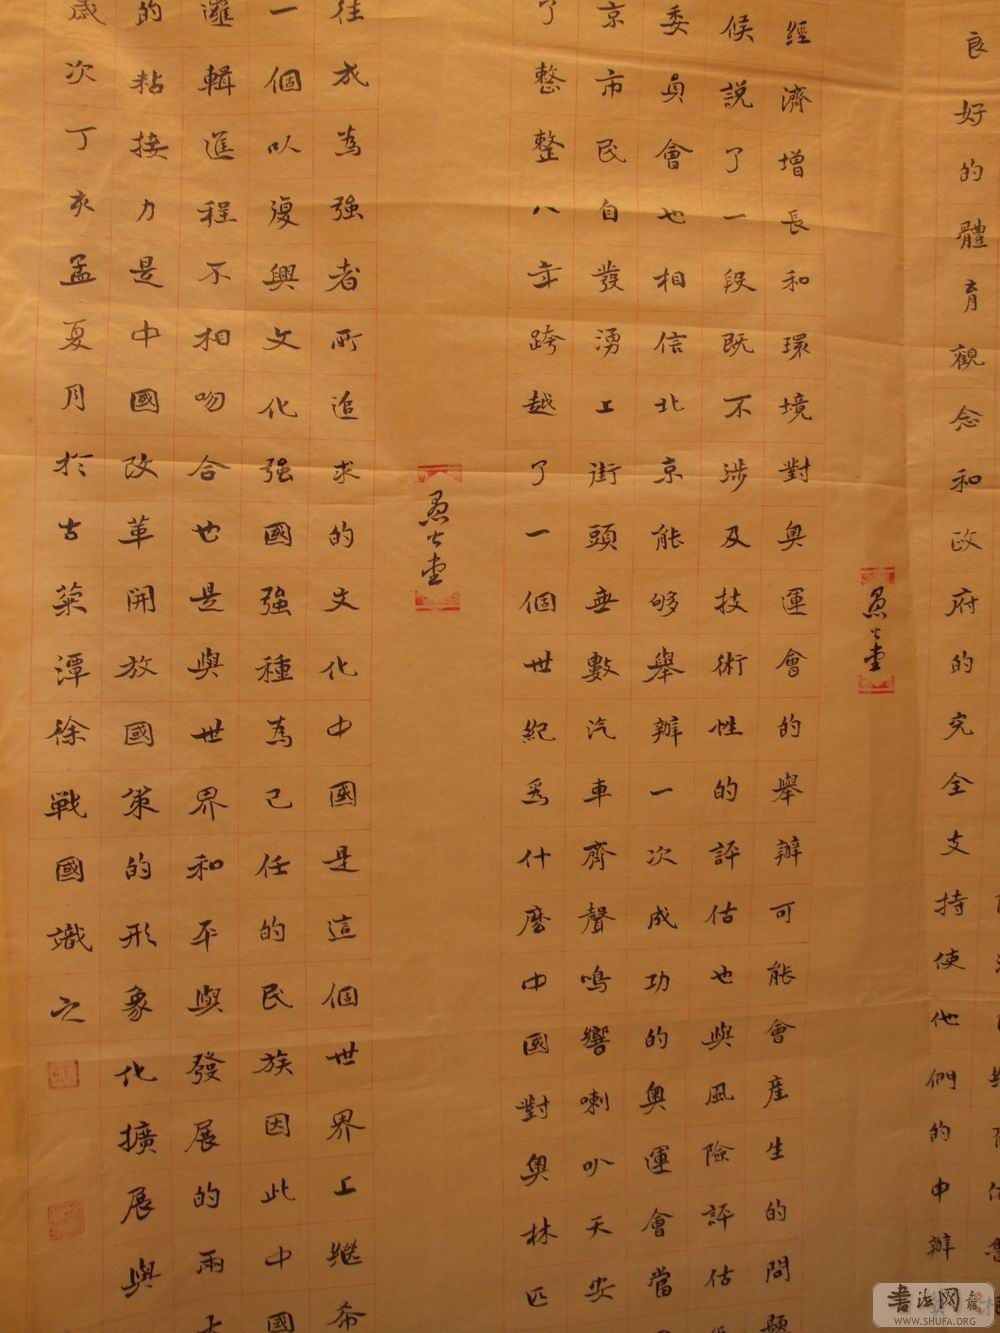 良好的體育觀念和政府的完全支持使他們的申辦
經濟增長和環境對奧運會的舉辦可能會產生的問題
候說了一段既不涉及技術性的評估也與風險評估
委員會也相信北京能够舉辦一次成功的奧運會當
京市民自發湧上街頭無數汽車齊聲鳴響喇叭天安
了整整八年跨越了一個世紀爲什麼中國對奧林匹
往成為強者所追求的文化中國是這個世界上繼希
一個以復興文化強國強種為己任的民族因此中國
邏輯進程不相吻合也是與世界和平與發展的兩大
的粘接力是中國改革開放國策的形象化擴展與
歲次丁亥孟夏月於古菜潭徐戰國識之
書法网
WWW.SHUFA.ORG